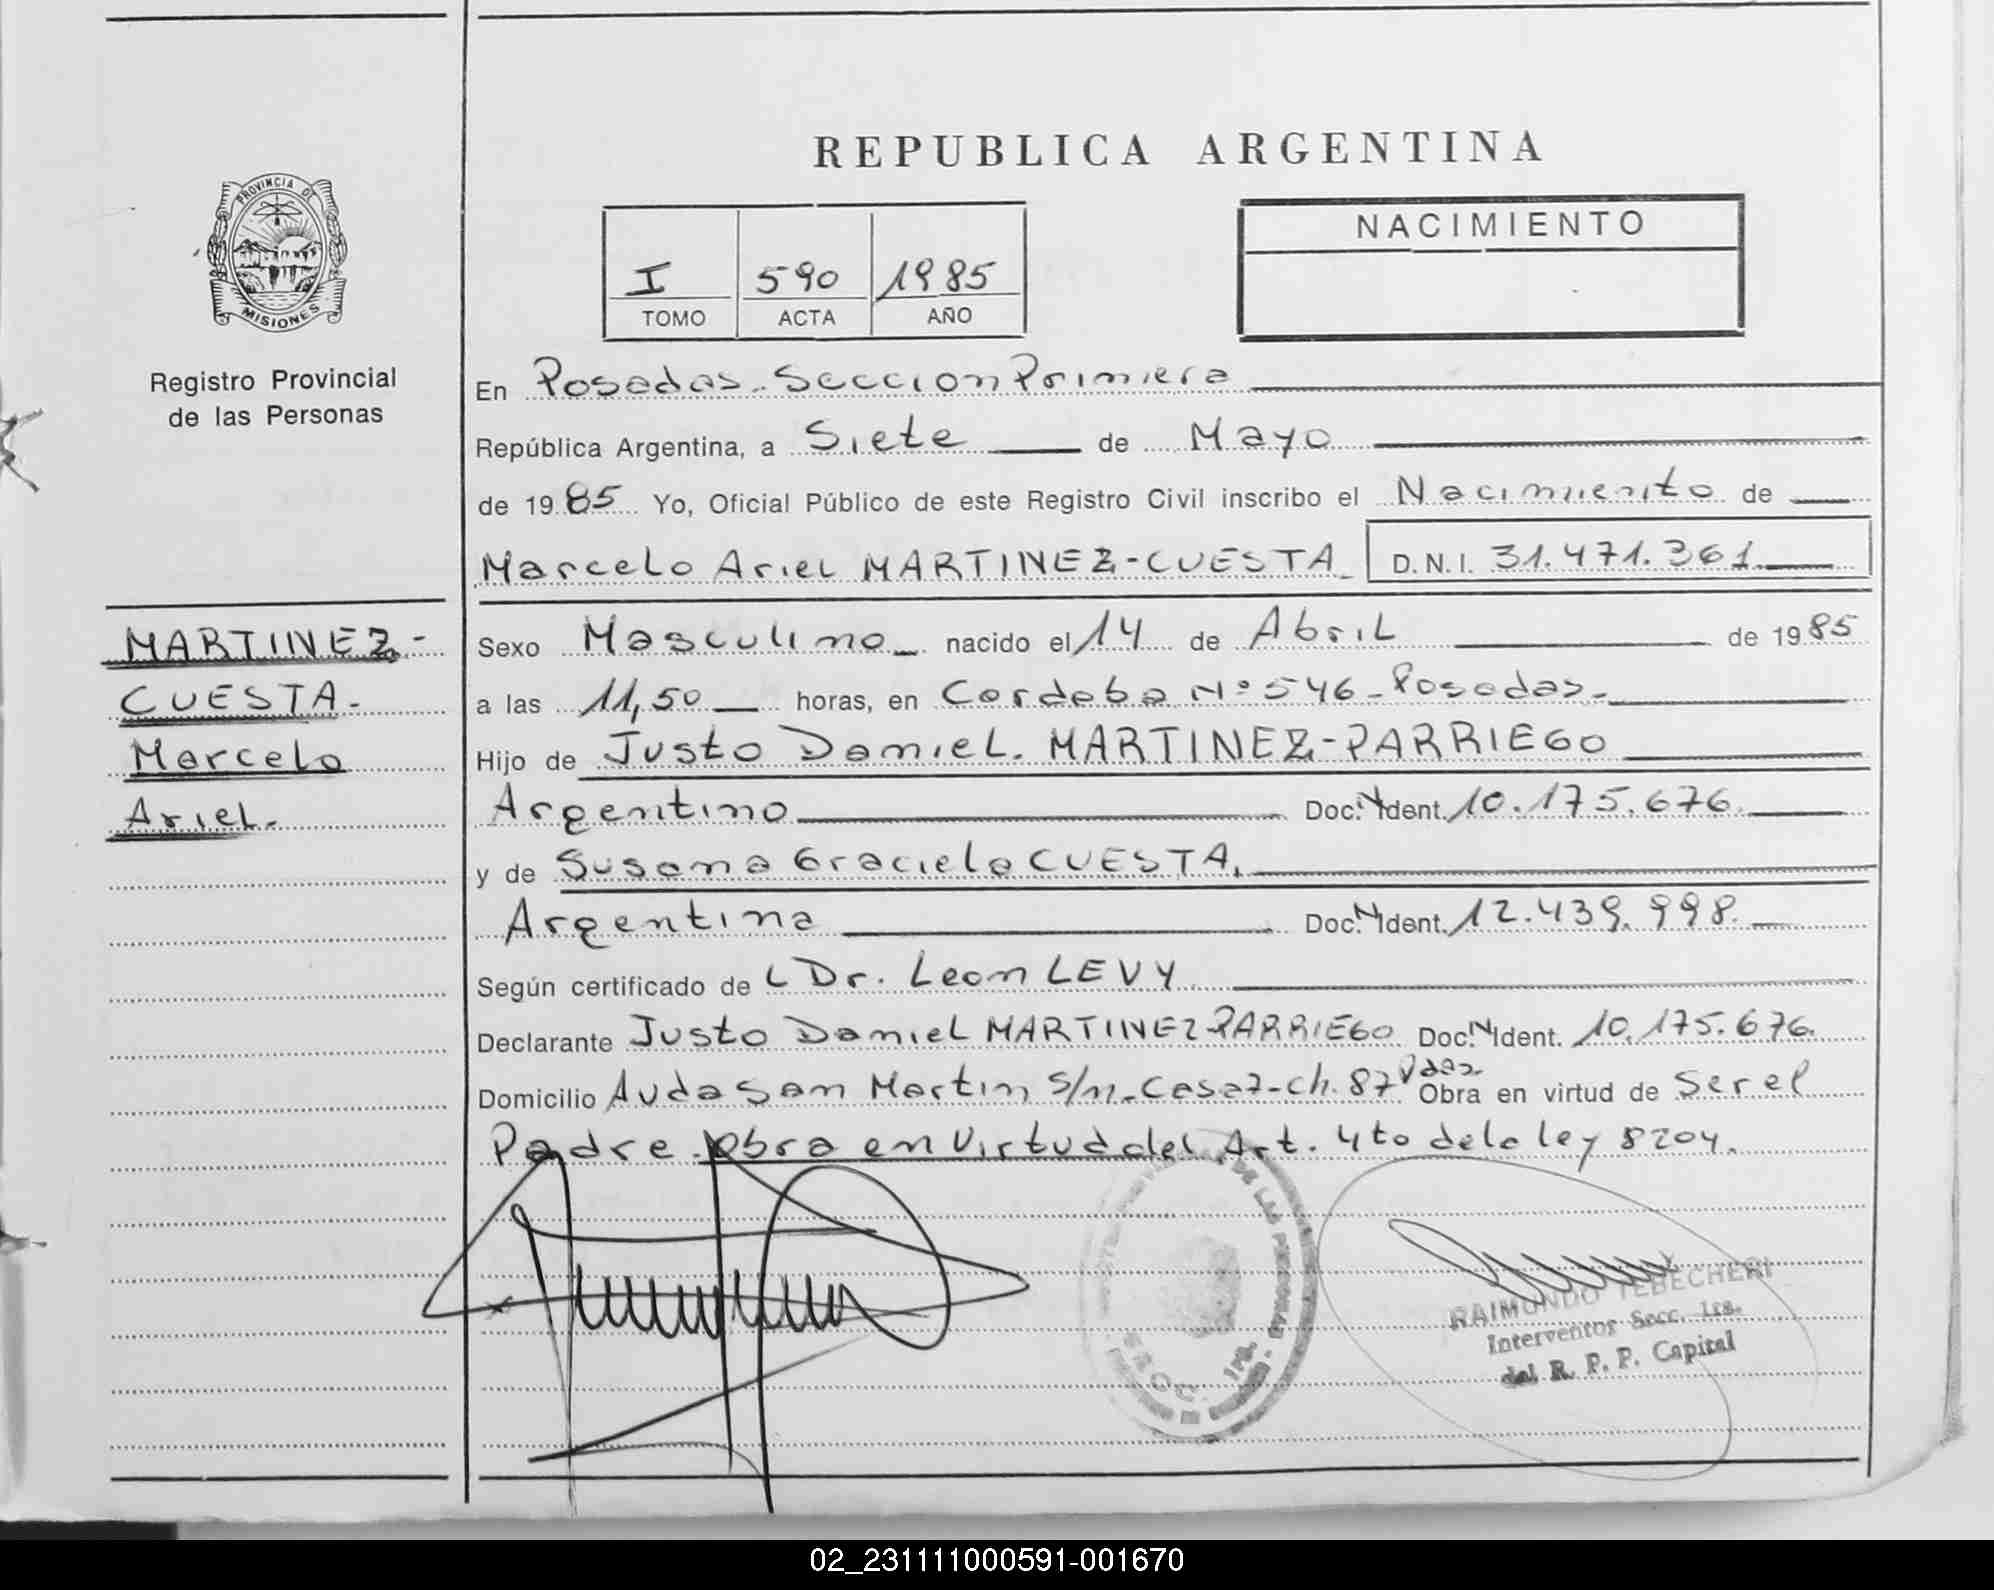 REPUBLICA ARGENTINA
PROVINCIA DE
MISIONES
Registro Provincial
de las Personas
I 590 1985
TOMO ACTA AÑO
NACIMIENTO
En Posadas. Seccion Primera
República Argentina, a Siete de Mayo
de 1985 Yo, Oficial Público de este Registro Civil inscribo el Nacimiento de
Marcelo Ariel MARTINEZ-CUESTA D.N.I. 31.471.361
MARTINEZ-
CUESTA.
Marcelo
Ariel.
Sexo Masculino nacido el 14 de Abril de 1985
a las 11,50 horas, en Cordoba Nº 546 - Posadas.
Hijo de Justo Daniel. MARTINEZ-PARRIEGO
Argentino Doc. N Ident. 10.175.676.
y de Susana Graciela CUESTA.
Argentina Doc. N Ident. 12.439.998.
Según certificado de L Dr. Leon LEVY
Declarante Justo Daniel MARTINEZ PARRIEGO Doc. N Ident. 10.175.676.
Domicilio Avda San Martin S/n. Casa 7-ch. 87 Pdas. Obra en virtud de Ser el
Padre. Obra en Virtud del Art. 4to de la ley 8204.
DE LAS PERSONAS
SECC. 1ra.
RAIMUNDO TEBECHERI
Interventor Secc. 1ra.
del R. P. P. Capital
02_231111000591-001670